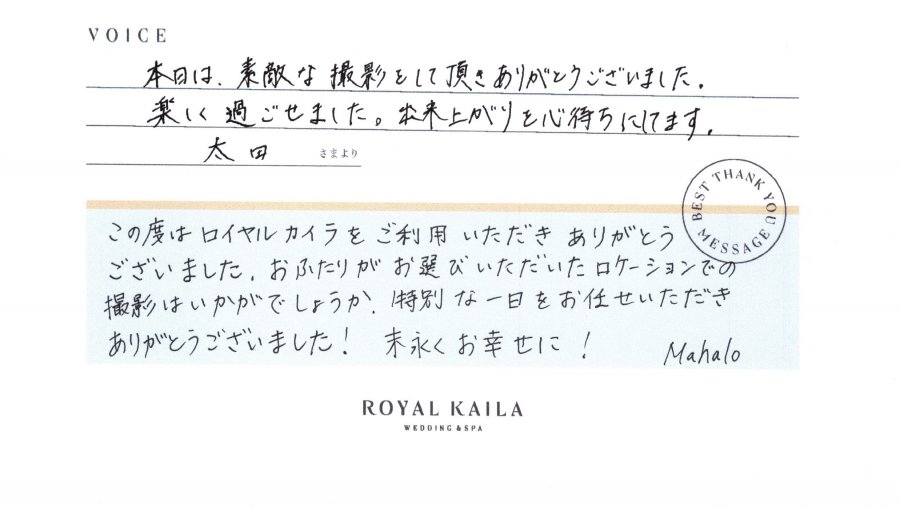 VOICE
本日は、素敵な撮影をして頂きありがとうございました。
楽しく過ごせました。出来上がりを心待ちにしてます。
太田 さまより
BEST THANK YOU MESSAGE
この度はロイヤルカイラをご利用いただきありがとう
ございました。おふたりがお選びいただいたロケーションでの
撮影はいかがでしょうか、特別な一日をお任せいただき
ありがとうございました! 末永くお幸せに!
Mahalo
ROYAL KAILA
WEDDING & SPA